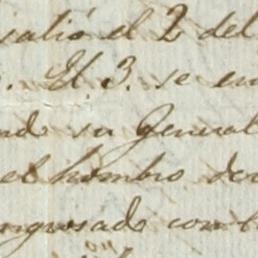 salió el 2 del
El 3. se en
su General
el hombro der
ingresado con l